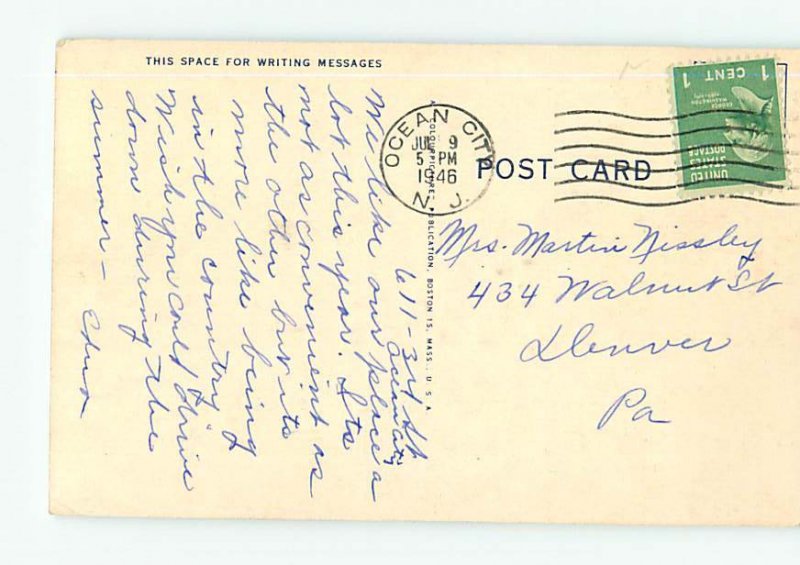 THIS SPACE FOR WRITING MESSAGES
611-3rd St
Ocean City
We like our place a
lot this year. Its
not as convenient as
the other but its
more like being
in the country.
Wish you could drive
down during the
summer – Edna
A COLOURPICTURE PUBLICATION, BOSTON 15, MASS., U.S.A.
OCEAN CITY
JUL 9
5 PM
1946
N. J.
POST CARD
1 CENT 1
GEORGE
WASHINGTON
UNITED
STATES
POSTAGE
Mrs. Martin Nissley
434 Walnut St
Denver
Pa